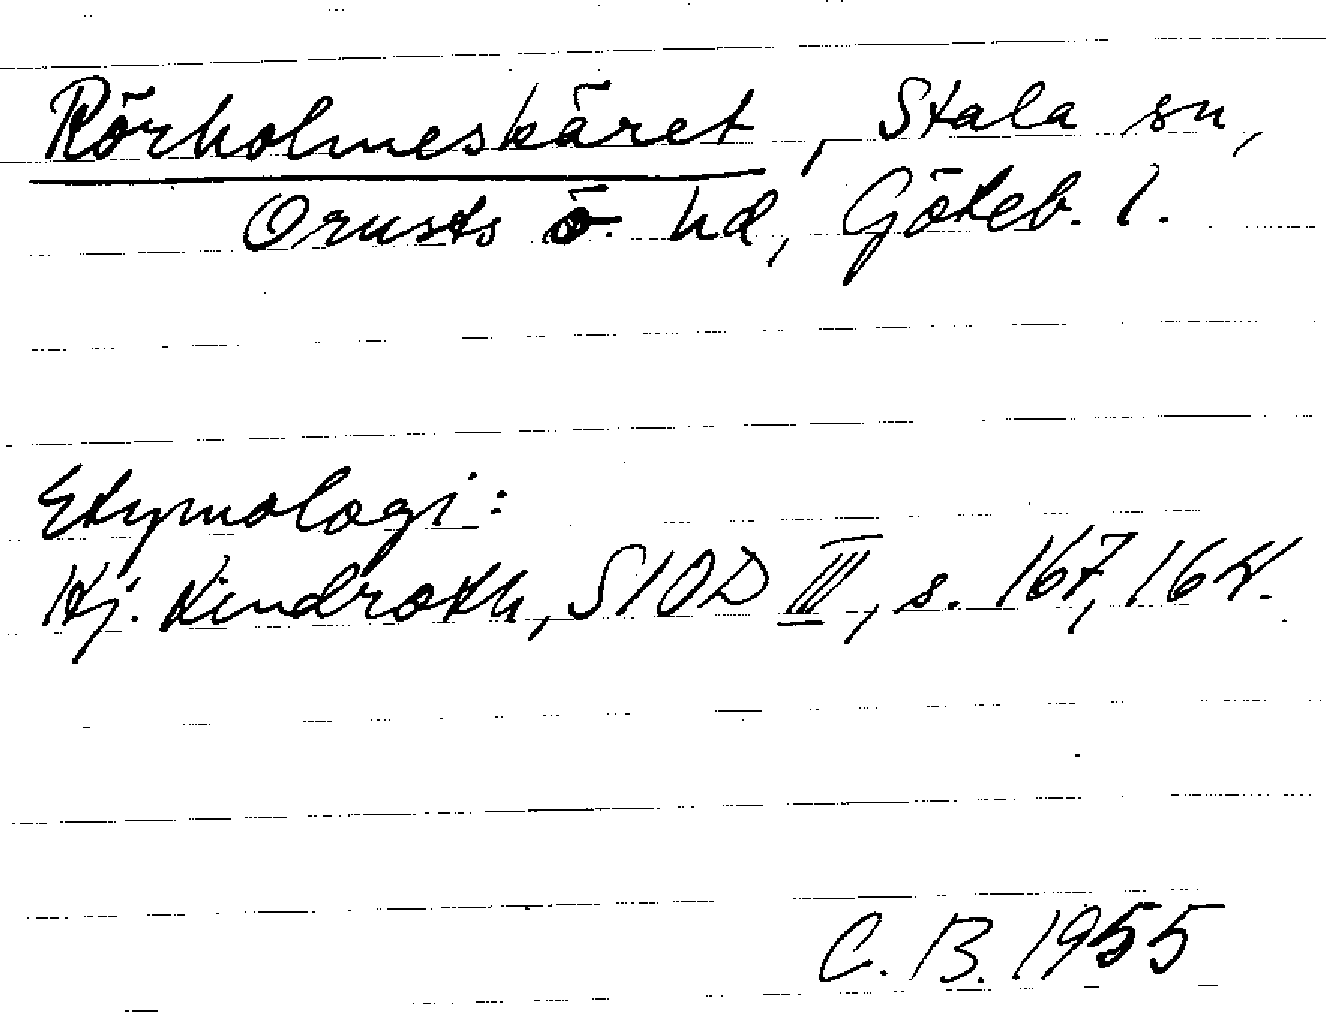 Rörholmeskäret, Stala sn,
Orusts ö. hd, Göteb. l.
Etymologi:
Hj. Lindroth, SIOD III, s. 167, 164.
C. B. 1955